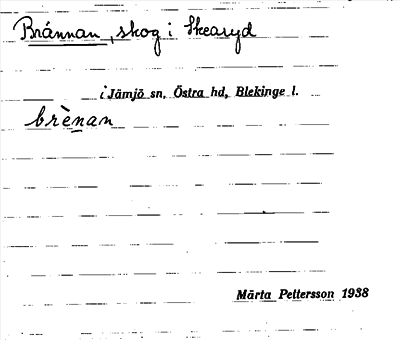 Brännan, skog i Skearyd
i Jämjö sn, Östra hd, Blekinge l.
brὲnan
Märta Pettersson 1938